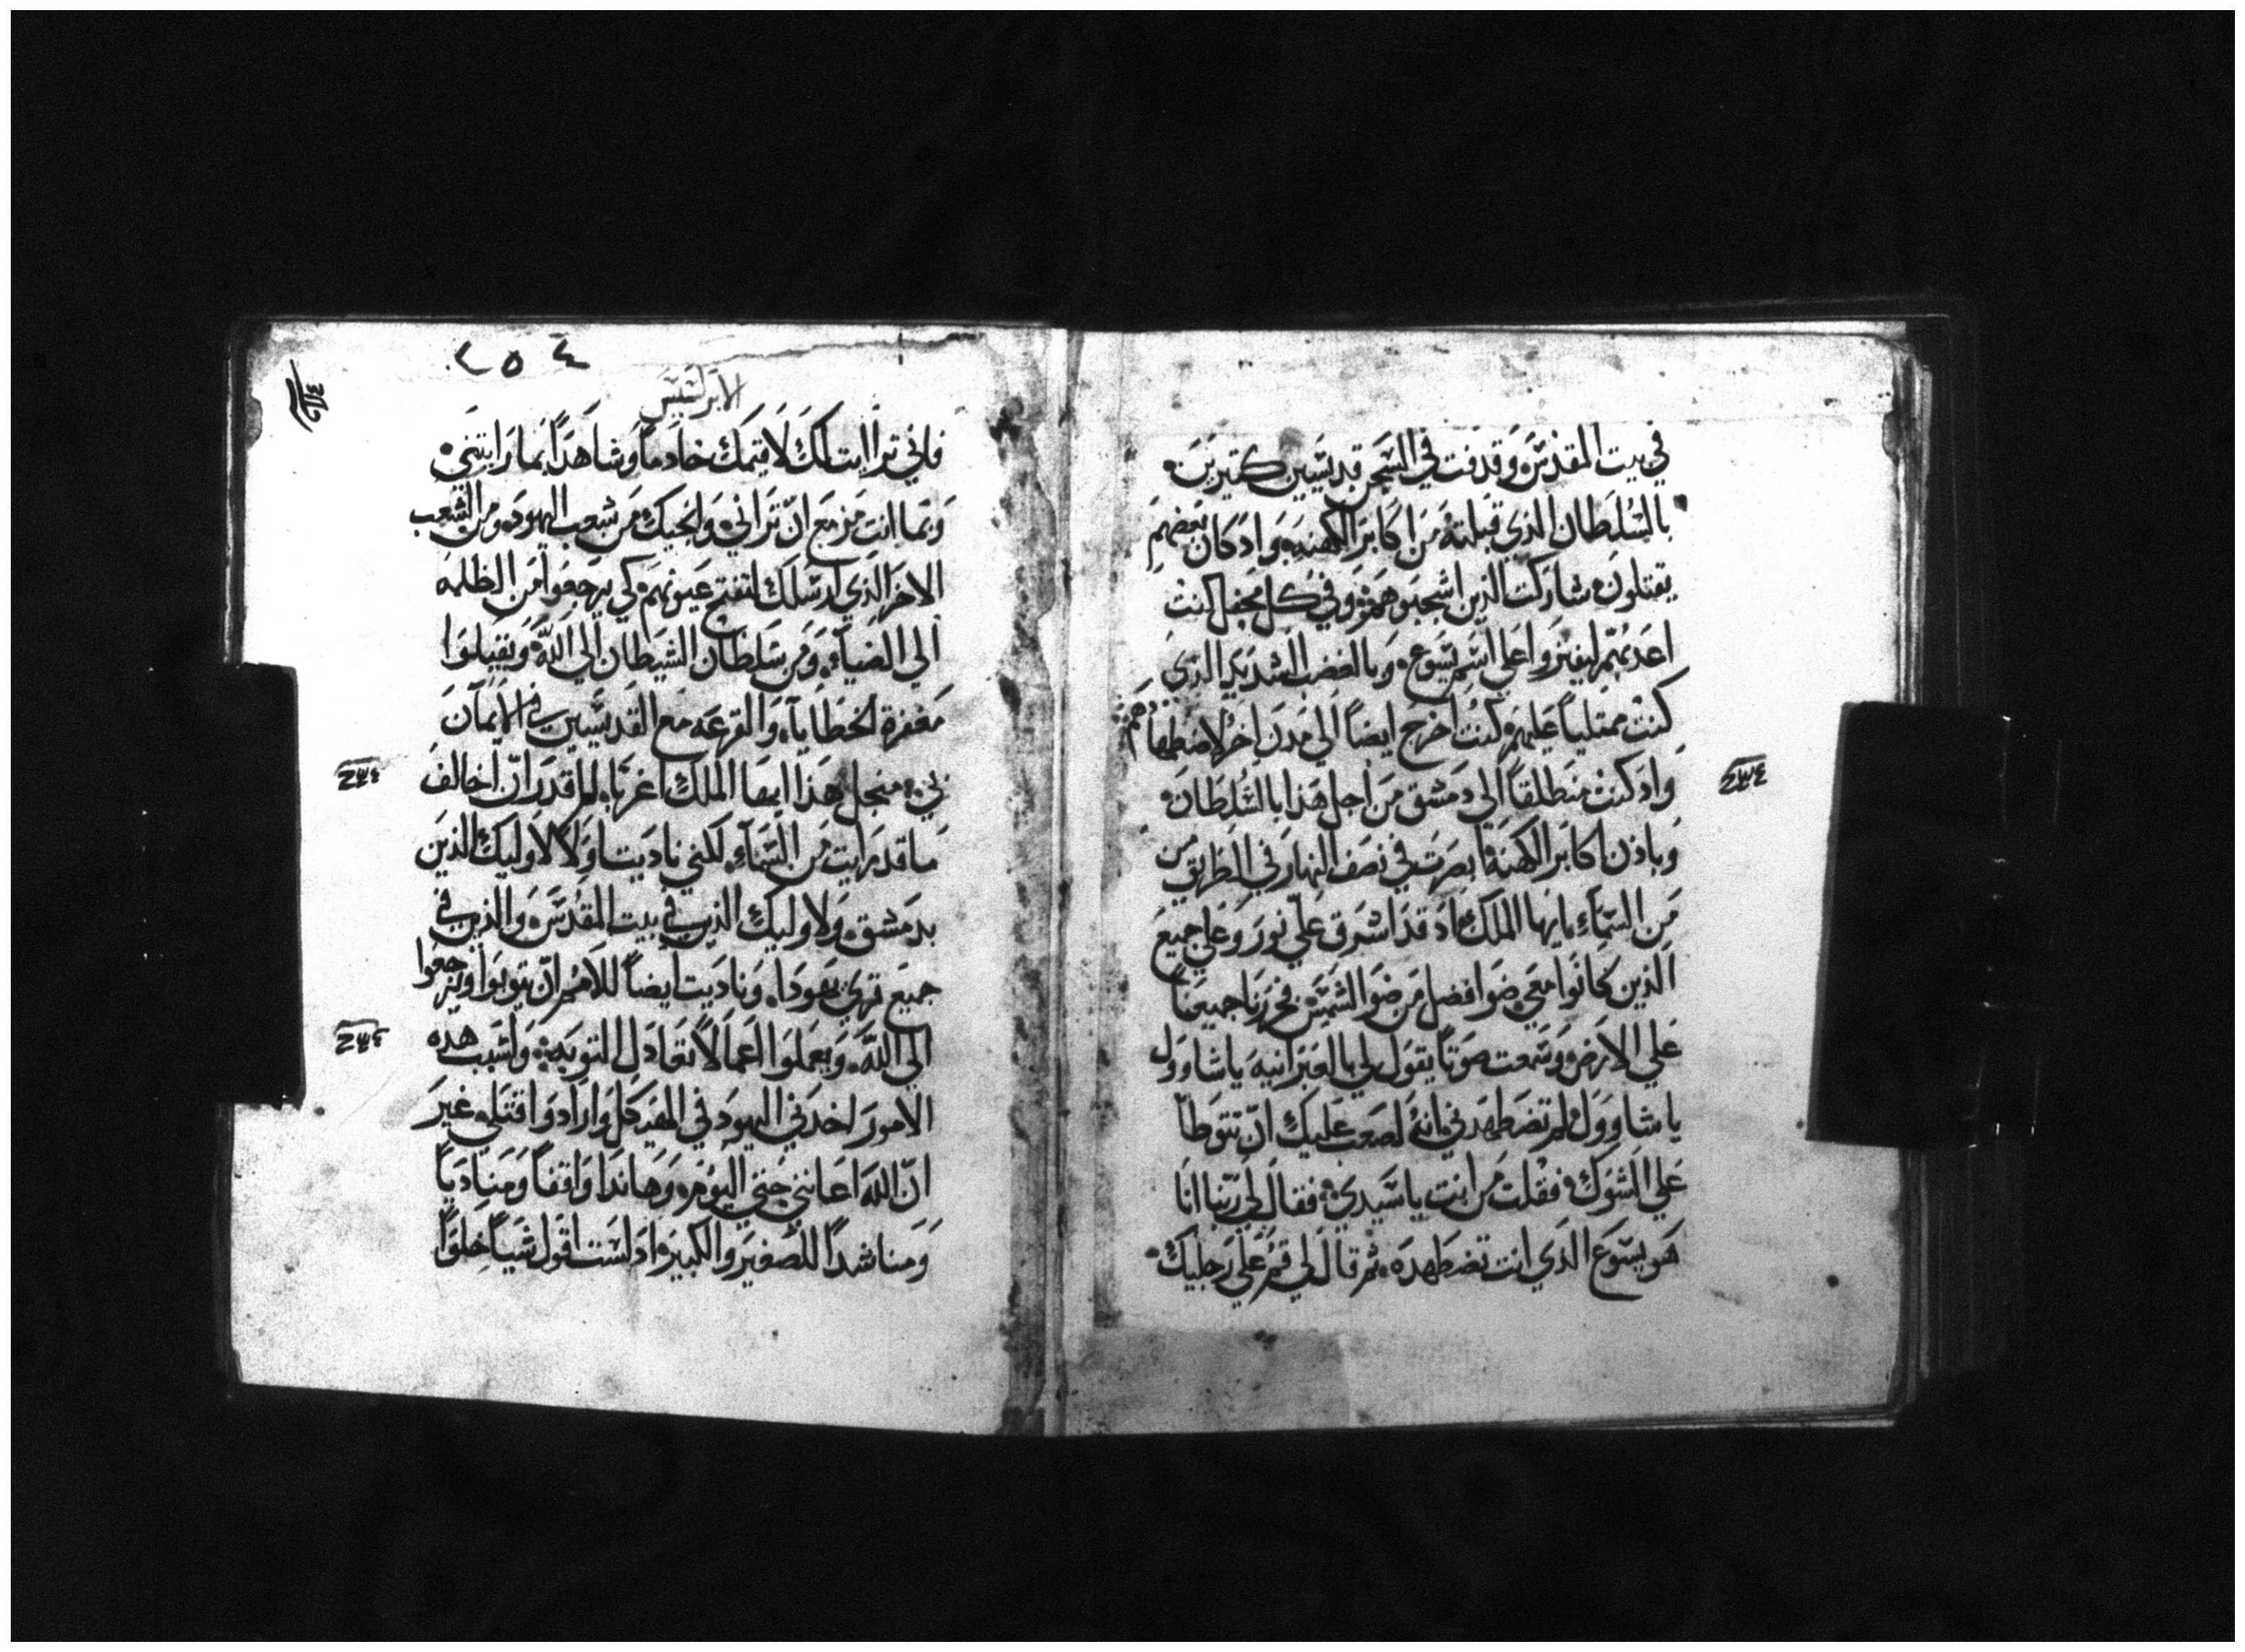 في بيت المقدس وقدفت في السجن قديسين كتيرين
بالسلطان الذي قبلته من اكابر الكهنه واد كان بعضهم
يقتلون شاركت الذين اشجبوهم وفي كل محفل كنت
اعدبهم ليفتروا علي اسم يسوع وبالغضب الشديد الذي
كنت ممتلياً عليهم كنت اخرج ايضاً الي مدن اخر لاضطهادهم
واد كنت منطلقاً الي دمشق من اجل هذا بالسلطان
وباذن اكابر الكهنة ابصرت في نصف النهار في الطريق من
من السماء يايها الملك اد قد اشرق علي نور وعلي جميع
الذين كانوا معي ضوا افضل من ضوا الشمس فخررنا جميعنا
علي الارض وسمعت صوتاً يقول لي بالعبرانيه ياشاوول
ياشاوول لم تضطهدني انه لصعب عليك ان تتوطا
علي الشوك فقلت من انت ياسيدي فقال لي ربنا انا
هو يسوع الذي انت تضطهده ثم قال لي قم علي رجليك
٢٣٤
٢٥٤
الابركسيس
فاني تراايت لك لاقيمك خادماً وشاهداً بما رايتني
وبما انت مزمع ان تراني وانجيك من شعب اليهود ومن الشعب
الاخر الذي ارسلك لتفتح عيونهم كي يرجعوا من الظلمه
الي الضياء ومن سلطان الشيطان الي الله ويقبلوا
مغفرة الخطايا والقرعه مع القديسين في الايمان
بي منجل هذا ايها الملك اغربا لم اقدر ان اخالف
ما قد رايت من السماء لكني ناديت اولا لاوليك الذين
بدمشق ولاوليك الذين في بيت المقدس والذين في
جميع قري يهودا وناديت ايضاً للامم ان يتوبوا ويرجعوا
الي الله ويعملوا اعمالاً تعادل التوبه ولسبب هده
الامور اخدني اليهود في الهيكل وارادوا قتلي غير
ان الله اعانني حتي اليوم وهاندا واقفاً ومنادياً
ومناشداً للصغير والكبير اد لست اقول شياً خلوًا
٢٣٤
٢٣٤